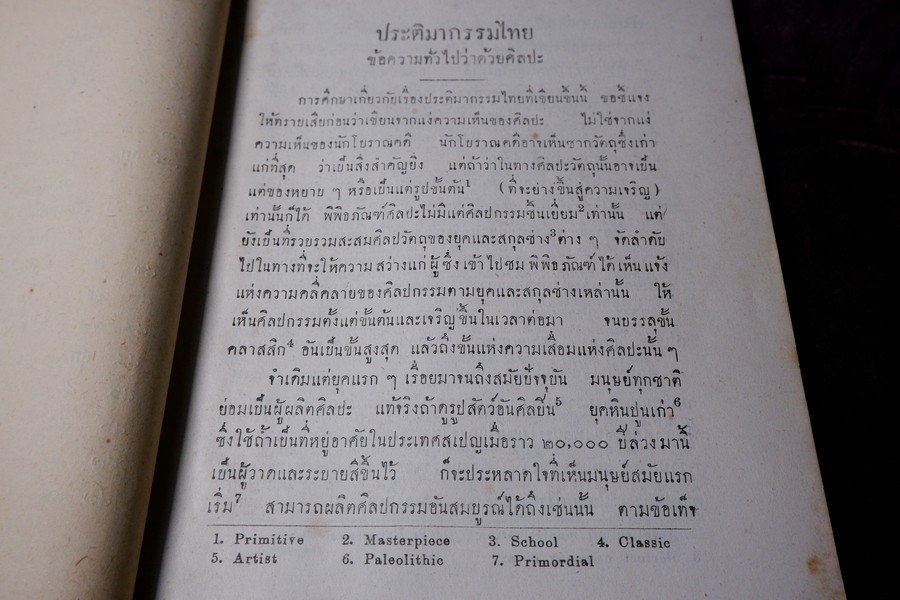 ประติมากรรมไทย
ข้อความทั่วไปว่าด้วยศิลปะ
การศึกษาเกี่ยวกับเรื่องประติมากรรมไทยที่เขียนขึ้นนี้ ขอชี้แจง
ให้ทราบเสียก่อนว่าเขียนจากแง่ความเห็นของศิลปะ ไม่ใช่จากแง่
ความเห็นของนักโบราณคดี นักโบราณคดีอาจเห็นซากวัตถุซึ่งเก่า
แก่ที่สุด ว่าเป็นสิ่งสำคัญยิ่ง แต่ถ้าว่าในทางศิลปะวัตถุนั้นอาจเป็น
แต่ของหยาบ ๆ หรือเป็นแต่รูปขั้นต้น¹ (ที่จะย่างขึ้นสู่ความเจริญ)
เท่านั้นก็ได้ พิพิธภัณฑ์ศิลปะไม่มีแต่ศิลปกรรมชิ้นเยี่ยม²เท่านั้น แต่
ยังเป็นที่รวบรวมสะสมศิลปวัตถุของยุคและสกุลช่าง³ต่าง ๆ จัดลำดับ
ไปในทางที่จะให้ความสว่างแก่ผู้ซึ่งเข้าไปชมพิพิธภัณฑ์ได้เห็นแจ้ง
แห่งความคลี่คลายของศิลปกรรมตามยุคและสกุลช่างเหล่านั้น ให้
เห็นศิลปกรรมตั้งแต่ขั้นต้นและเจริญขึ้นในเวลาต่อมา จนบรรลุขั้น
คลาสสิก⁴ อันเป็นขั้นสูงสุด แล้วถึงขั้นแห่งความเสื่อมแห่งศิลปะนั้น ๆ
จำเดิมแต่ยุคแรก ๆ เรื่อยมาจนถึงสมัยปัจจุบัน มนุษย์ทุกชาติ
ย่อมเป็นผู้ผลิตศิลปะ แท้จริงถ้าดูรูปสัตว์อันศิลปิน⁵ ยุคหินปูนเก่า⁶
ซึ่งใช้ถ้ำเป็นที่อยู่อาศัยในประเทศสเปญเมื่อราว ๒๐,๐๐๐ ปีล่วงมานี้
เป็นผู้วาดและระบายสีขึ้นไว้ ก็จะประหลาดใจที่เห็นมนุษย์สมัยแรก
เริ่ม⁷ สามารถผลิตศิลปกรรมอันสมบูรณ์ได้ถึงเช่นนั้น ตามข้อเท็จ
1. Primitive 2. Masterpiece 3. School 4. Classic
5. Artist 6. Paleolithic 7. Primordial